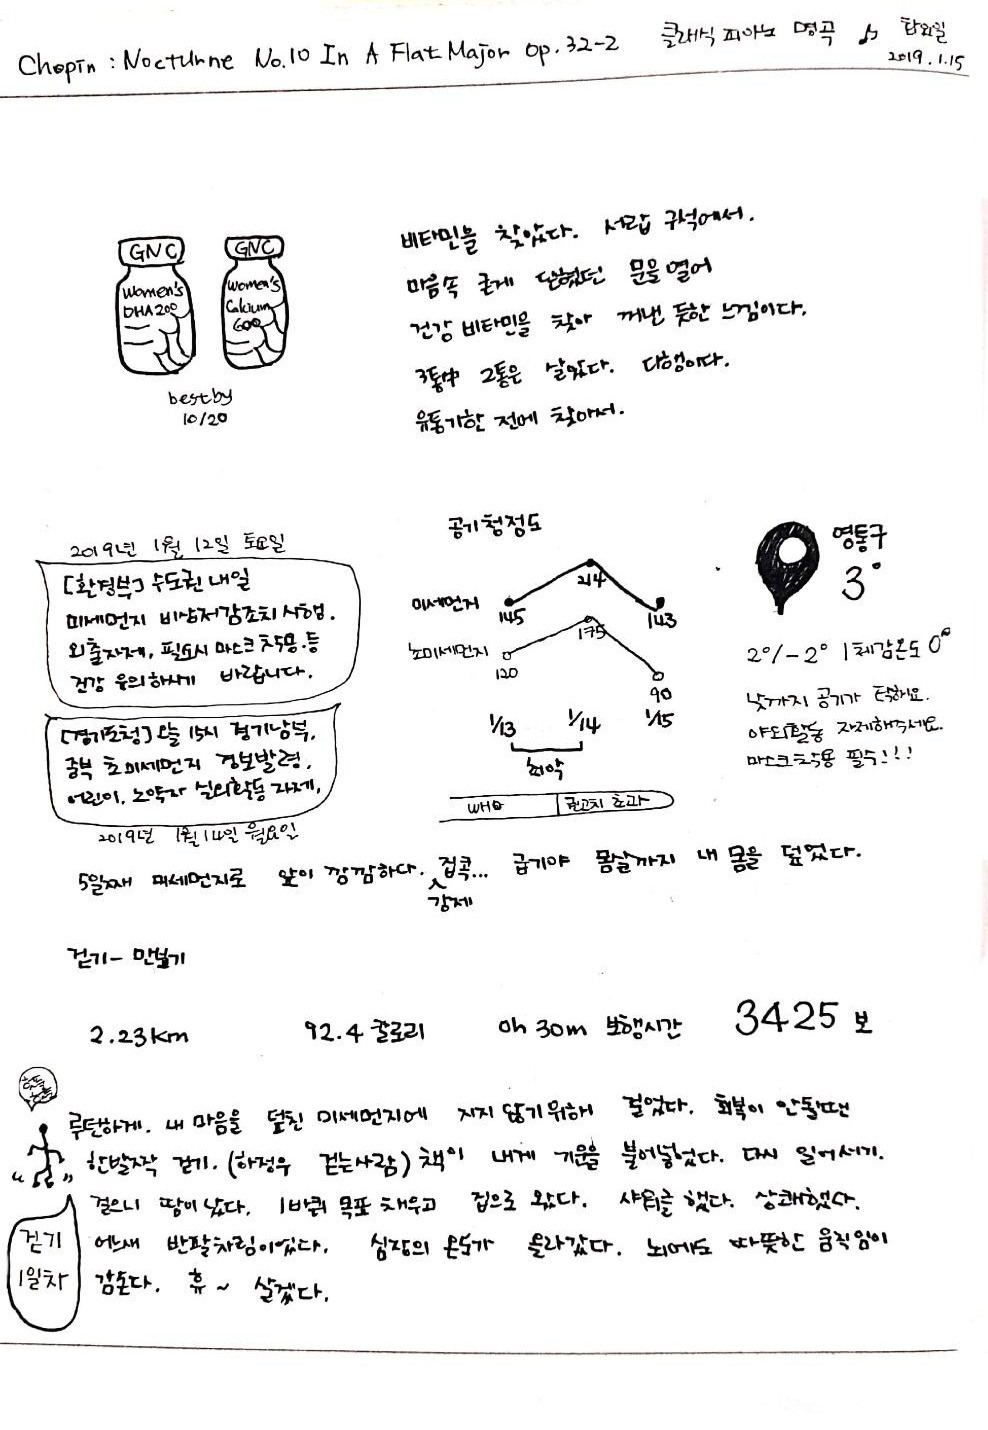 Chopin : Nocturne No.10 In A Flat Major op.32-2 클래식 피아노 명곡 ♫ 화요일
2019.1.15
GNC
Women's
DHA 200
GNC
Women's
Calcium
600
best by
10/20
비타민을 찾았다. 서랍 구석에서.
마음속 굳게 닫혔던 문을 열어
건강 비타민을 찾아 꺼낸 듯한 느낌이다.
3통中 2통은 살았다. 다행이다.
유통기한 전에 찾아서.
2019년 1월 12일 토요일
[환경부] 수도권 내일
미세먼지 비상저감조치 시행.
외출자제, 필요시 마스크 착용 등
건강 유의하시기 바랍니다.
[경기도청] 오늘 15시 경기남부,
중부 초미세먼지 경보발령,
어린이, 노약자 실외활동 자제,
2019년 1월 14일 월요일
공기청정도
미세먼지 145 214 143
초미세먼지 120 175 90
1/13 1/14 1/15
최악
WHO 권고치 초과
영통구
3°
2°/-2° | 체감온도 0°
낮까지 공기가 탁해요.
야외활동 자제해주세요.
마스크착용 필수!!!
5일째 미세먼지로 앞이 깜깜하다. 강제 집콕... 급기야 몸살까지 내 몸을 덮쳤다.
걷기 - 만보기
2.23km 92.4 칼로리 0h 30m 보행시간 3425 보
루턴하게. 내 마음을 덮친 미세먼지에 지지 않기위해 걸었다. 회복이 안될땐
한발짝 걷기. (하정우 걷는사람) 책이 내게 기운을 불어넣었다. 다시 일어서기.
걸으니 땀이 났다. 1바퀴 목표 채우고 집으로 왔다. 샤워를 했다. 상쾌했다.
어느새 반팔차림이었다. 심장의 온도가 올라갔다. 뇌에도 따뜻한 움직임이
감돈다. 휴~ 살겠다.
걷기
1일차